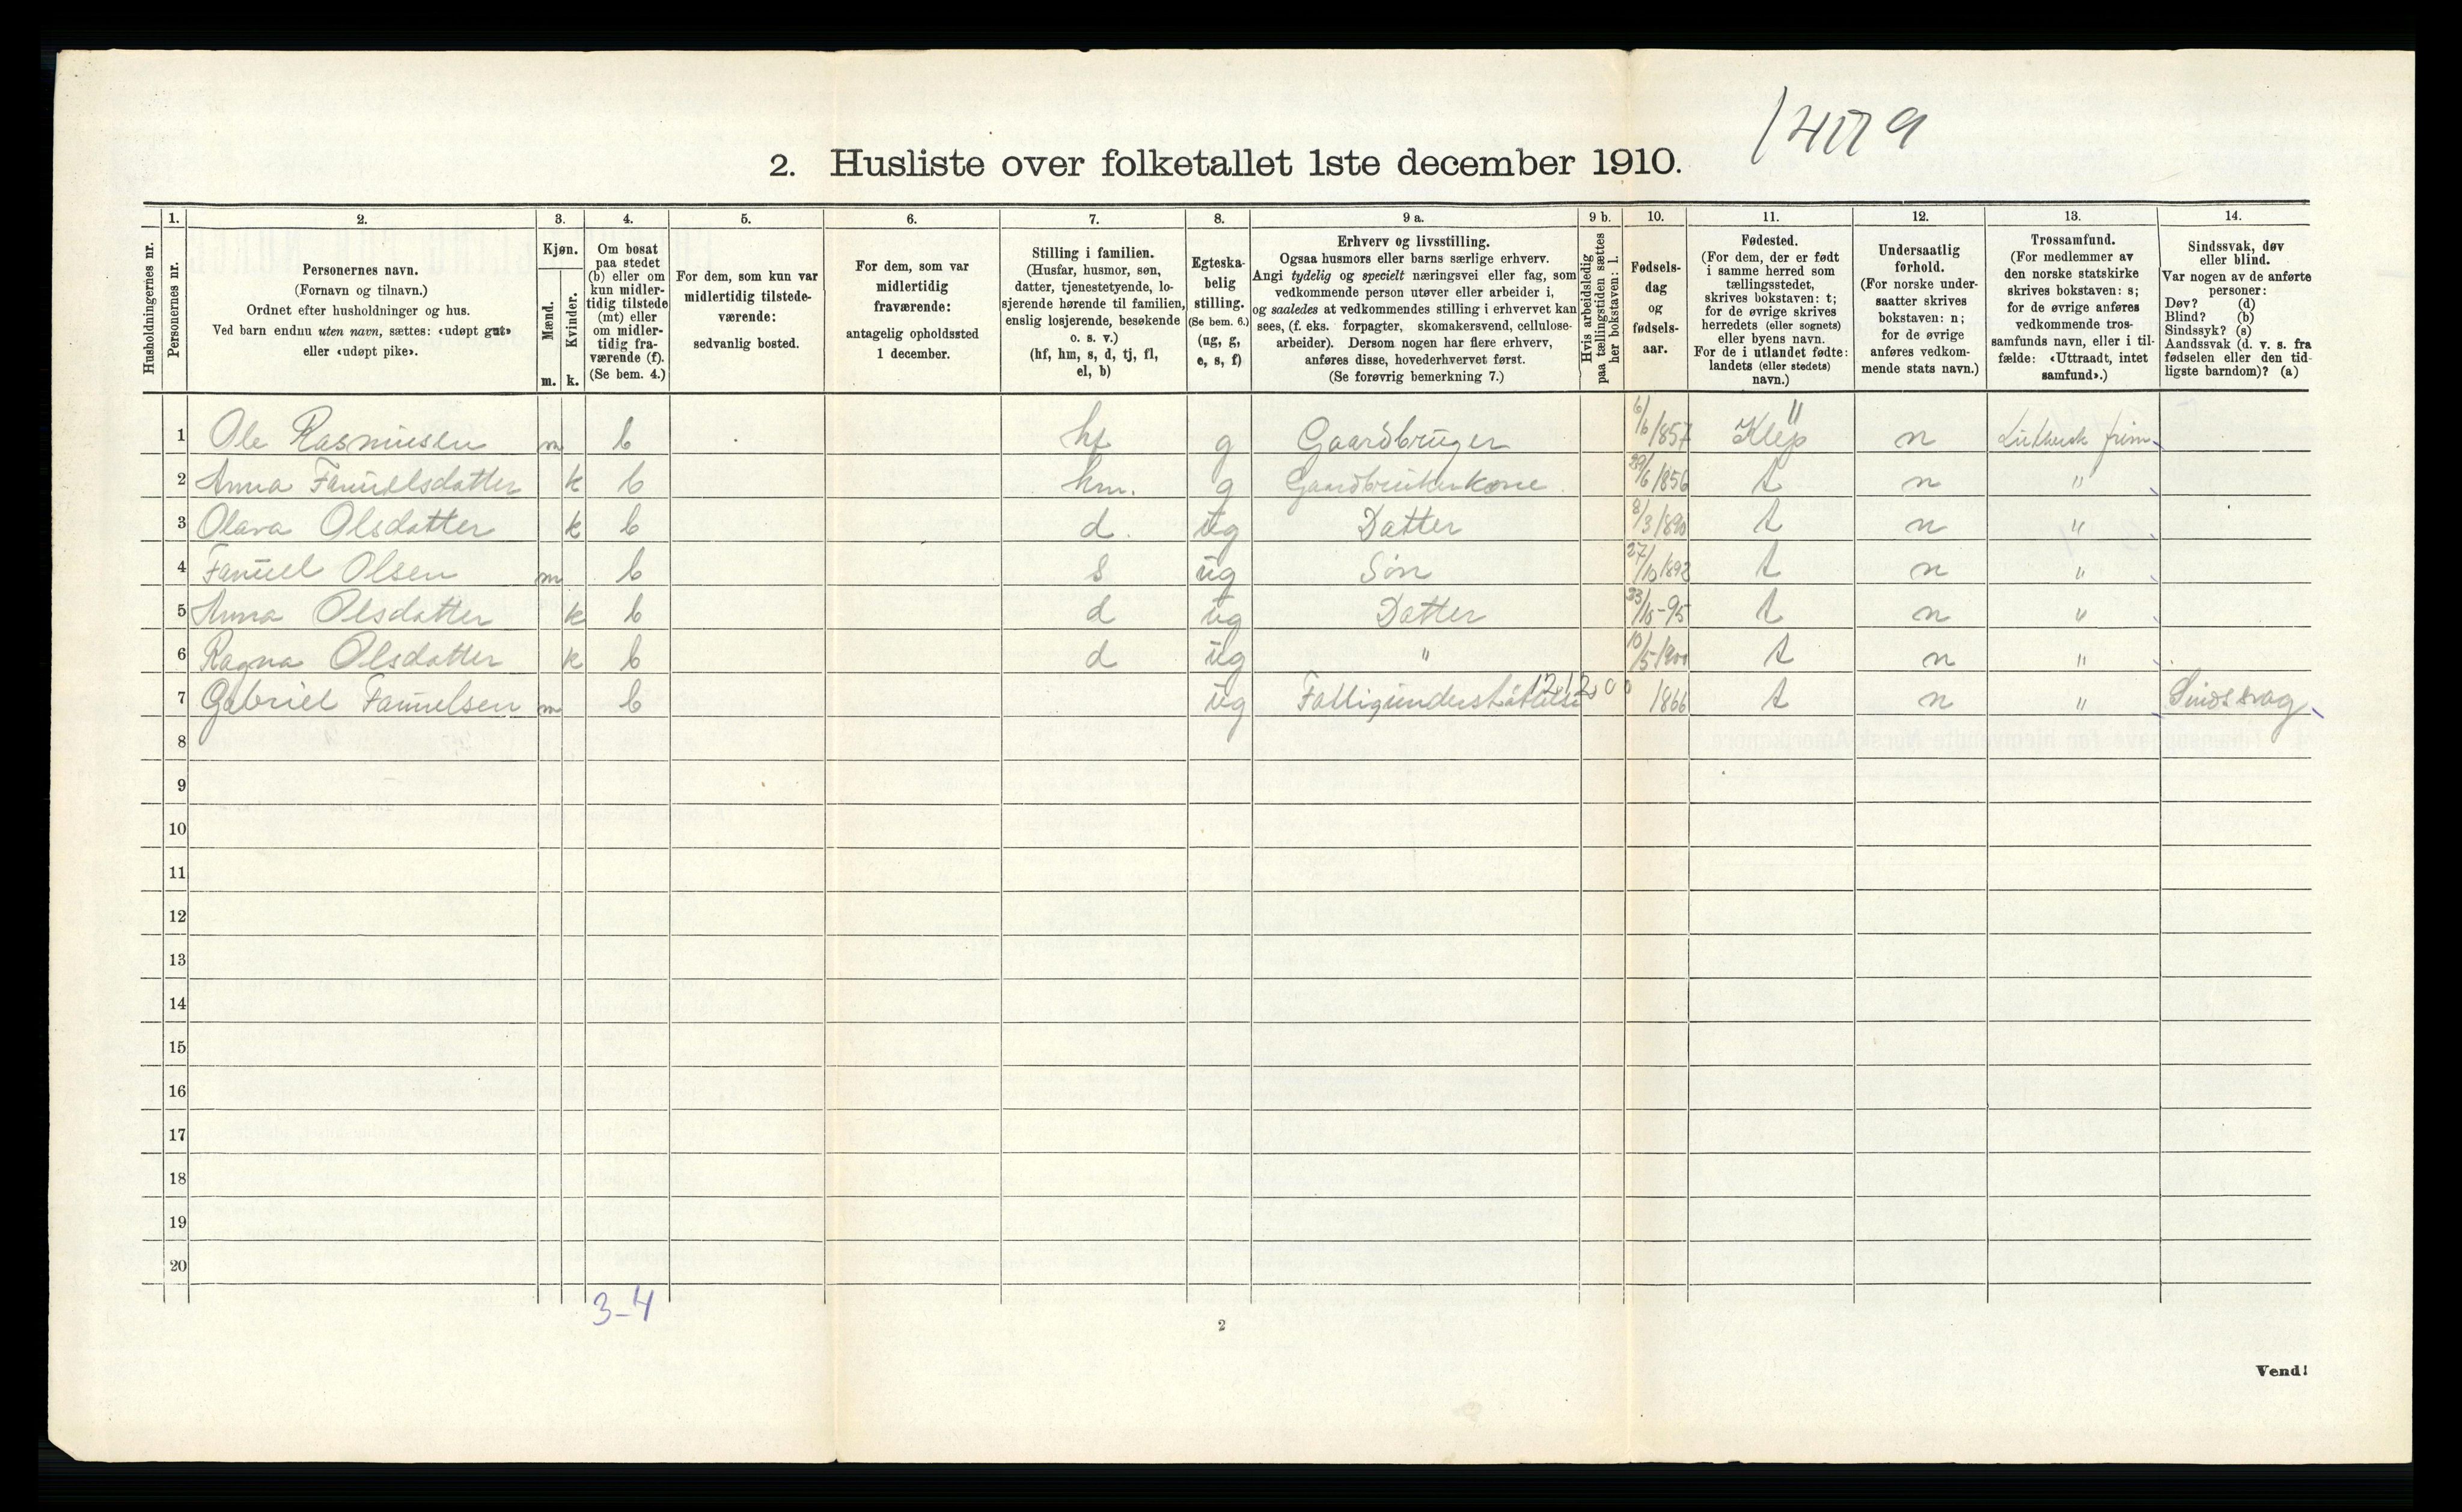 1479
2. Husliste over folketallet 1ste december 1910.
Husholdningernes nr.
1. Personernes nr.
2. Personernes navn. (Fornavn og tilnavn.) Ordnet efter husholdninger og hus. Ved barn endnu uten navn, sættes: «udøpt gut» eller «udøpt pike».
3. Kjøn. Mænd. m. Kvinder. k.
4. Om bosat paa stedet (b) eller om kun midler-tidig tilstede (mt) eller om midler-tidig fra-værende (f). (Se bem. 4.)
5. For dem, som kun var midlertidig tilstede-værende: sedvanlig bosted.
6. For dem, som var midlertidig fraværende: antagelig opholdssted 1 december.
7. Stilling i familien. (Husfar, husmor, søn, datter, tjenestetyende, lo-sjerende hørende til familien, enslig losjerende, besøkende o. s. v.) (hf, hm, s, d, tj, fl, el, b)
8. Egteska-belig stilling. (Se bem. 6.) (ug, g, e, s, f)
9 a. Erhverv og livsstilling. Ogsaa husmors eller barns særlige erhverv. Angi tydelig og specielt næringsvei eller fag, som vedkommende person utøver eller arbeider i, og saaledes at vedkommendes stilling i erhvervet kan sees, (f. eks. forpagter, skomakersvend, cellulose-arbeider). Dersom nogen har flere erhverv, anføres disse, hovederhvervet først. (Se forøvrig bemerkning 7.)
9 b. Hvis arbeidsledig paa tællingstiden sættes her bokstaven: l.
10. Fødsels-dag og fødsels-aar.
11. Fødested. (For dem, der er født i samme herred som tællingsstedet, skrives bokstaven: t; for de øvrige skrives herredets (eller sognets) eller byens navn. For de i utlandet fødte: landets (eller stedets) navn.)
12. Undersaatlig forhold. (For norske under-saatter skrives bokstaven: n; for de øvrige anføres vedkom-mende stats navn.)
13. Trossamfund. (For medlemmer av den norske statskirke skrives bokstaven: s; for de øvrige anføres vedkommende tros-samfunds navn, eller i til-fælde: «Uttraadt, intet samfund».)
14. Sindssvak, døv eller blind. Var nogen av de anførte personer: Døv? (d) Blind? (b) Sindssyk? (s) Aandssvak (d. v. s. fra fødselen eller den tid-ligste barndom)? (a)
1 Ole Rasmussen m b hf g Gaardbruger 6/6 1857 Klep " n Luthersk frim.
2 Anna Fanuelsdatter k b hm. g Gaardbrukerkone 29/6 1856 t n "
3 Olava Olsdatter k b d. ug Datter 8/3 1890 t n "
4 Fanuel Olsen m b s ug Søn 27/10 1892 t n "
5 Anna Olsdatter k b d ug Datter 23/10-95 t n "
6 Ragna Olsdatter k b d ug " 10/5 1900 t n "
7 Gabriel Fanuelsen m b ug Fattigunderstøttelse 1866 t n " Sindssvag
8
9
10
11
12
13
14
15
16
17
18
19
20
3-4
2
Vend!